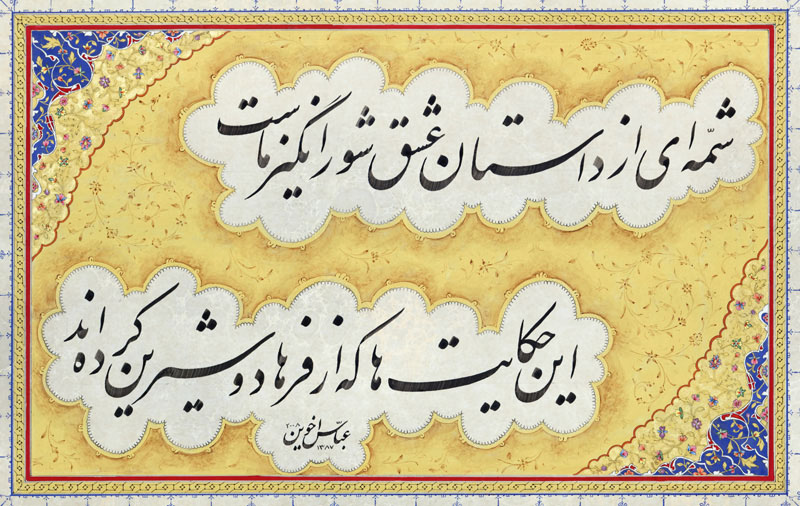 شمّه ای از داستان عشق شورانگیز ماست
این حکایت ها که از فرهاد و شیرین کرده اند
عباس اخوین
۲۰۰۸
۱۳۸۷